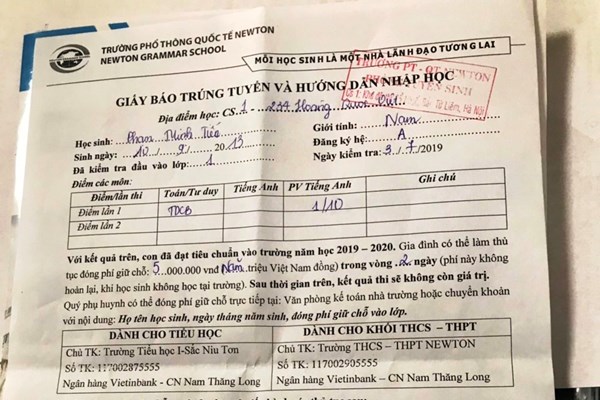 TRƯỜNG PHỔ THÔNG QUỐC TẾ NEWTON
NEWTON GRAMMAR SCHOOL
MỖI HỌC SINH LÀ MỘT NHÀ LÃNH ĐẠO TƯƠNG LAI
TRƯỜNG PT - QT NEWTON
GIẤY BÁO TRÚNG TUYỂN VÀ HƯỚNG DẪN NHẬP HỌC
Địa điểm học: CS 1 - 234 Hoàng Quốc Việt
Học sinh: Phan Minh
Giới tính: Nam
Sinh ngày: 10 / 9 / 2013
Đăng ký hệ: A
Đã kiểm tra đầu vào lớp: 1
Ngày kiểm tra: 3 / 7 /2019
Điểm các môn:
Điểm/lần thi Toán/Tư duy Tiếng Anh PV Tiếng Anh Ghi chú
Điểm lần 1 TDCB 1/10
Điểm lần 2
Với kết quả trên, con đã đạt tiêu chuẩn vào trường năm học 2019 – 2020. Gia đình có thể làm thủ
tục đóng phí giữ chỗ: 5.000.000 vnđ Năm triệu Việt Nam đồng) trong vòng 2 ngày (phí này không
hoàn lại, khi học sinh không học tại trường). Sau thời gian trên, kết quả thi sẽ không còn giá trị.
Quý phụ huynh có thể đóng phí giữ chỗ trực tiếp tại: Văn phòng kế toán nhà trường hoặc chuyển khoản
với nội dung: Họ tên học sinh, ngày tháng năm sinh, đóng phí giữ chỗ vào lớp.
DÀNH CHO TIỂU HỌC
Chủ TK: Trường Tiểu học I-Sắc Niu Tơn
Số TK: 117002875555
Ngân hàng Vietinbank - CN Nam Thăng Long
DÀNH CHO KHỐI THCS – THPT
Chủ TK: Trường THCS – THPT NEWTON
Số TK: 117002905555
Ngân hàng Vietinbank – CN Nam Thăng Long